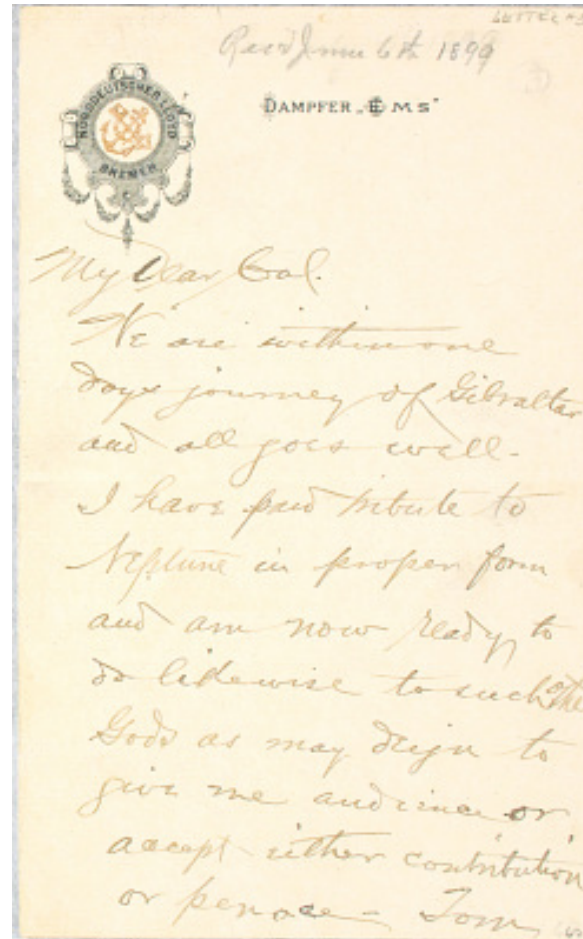 LETTER #5
Rec'd June 6th 1899
NORDDEUTSCHER LLOYD
BREMEN
DAMPFER „EMS"
My Dear Col.
We are within one
days journey of Gibraltar
and all goes well.
I have paid tribute to
Neptune in proper form
and am now ready to
do likewise to such other
Gods as may deign to
give me audience or
accept either contribution
or penace - Tom